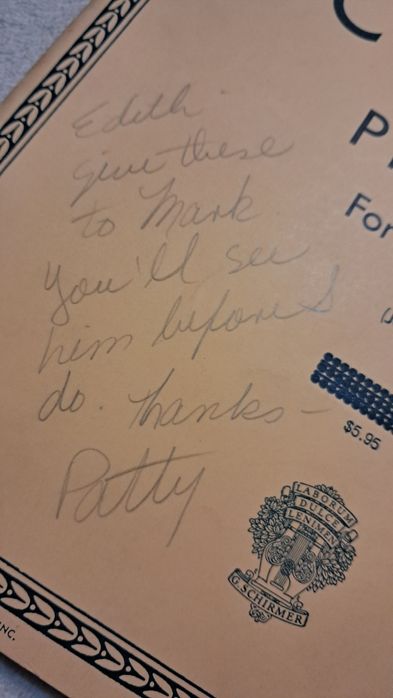 Edith.
give these
to Mark
You'll see
him before I
do. Thanks-
Patty
C
P
For
$5.95
LABORUM
DULCE
LENIMEN
G. SCHIRMER
INC.